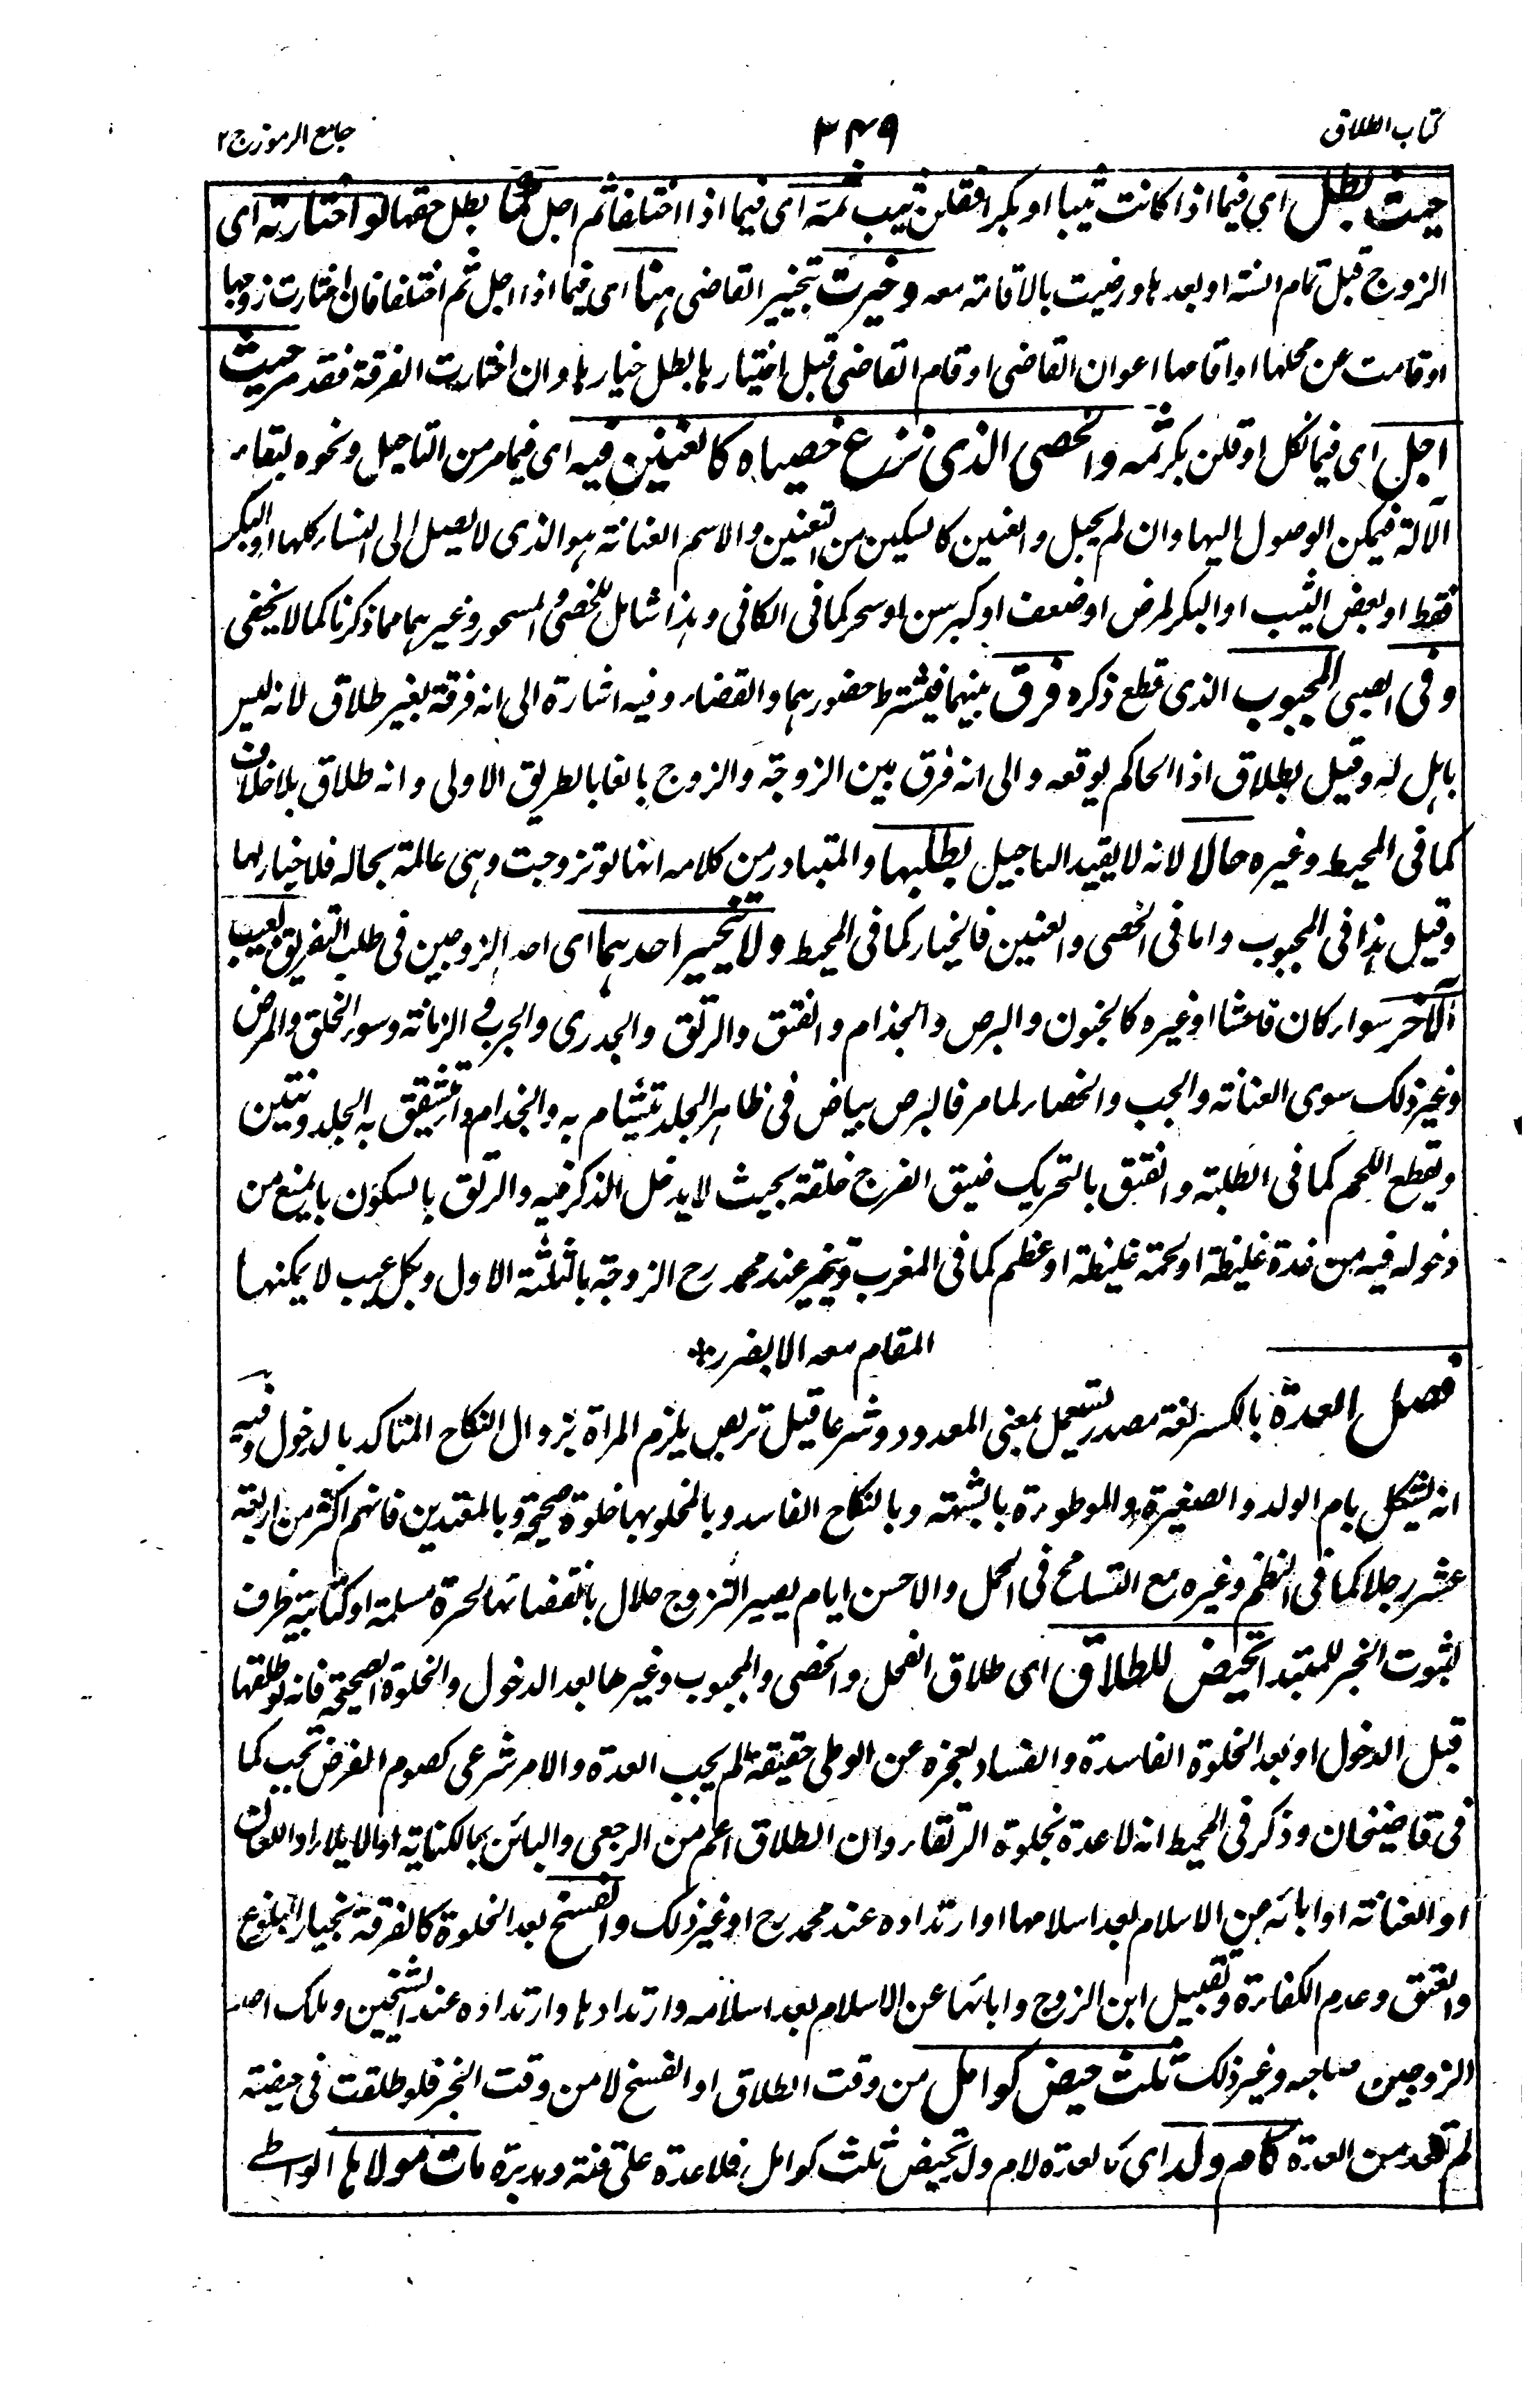 كتاب الطلاق
٣٤٩
جامع الرموز ج ٢
حيث بطل اى فيما اذا كانت ثيبا او بكرا فقلن ثيب ثمة اى فيما اذا اختلفا ثم اجل كما بطل حقها لو اختارته اى
الزوج قبل تمام السنة او بعدها ورضيت بالاقامة معه وخيرت بتخيير القاضى هنا اى فيما اذا اجل ثم اختلفا فان اختارت زوجها
او قامت عن محلها او اقامها اعوان القاضى او قام القاضى قبل اختيارها بطل خيارها وان اختارت الفرقة فقد مر حيث
اجل اى فيما نكل او قلن بكر ثمه والخصى الذى نزع خصياه كالعنين فيه اى فيما مر من التاجيل ونحوه لبقاء
الآلة فيمكن الوصول اليها وان لم يحبل والعنين كالسكين من التعنين والاسم العنانة هو الذى لا يصل الى النساء كلها او البكر
فقط او بعض الثيب او البكر لمرض او ضعف او كبر سن او سحر كما فى الكافى وهذا شامل للخصى والمسحور وغيرهما مما ذكرنا كما لا يخفى
وفى الصبى المجبوب الذى قطع ذكره فرق بينهما فيشترط حضورهما والقضاء وفيه اشارة الى انه فرقة بغير طلاق لانه ليس
باهل له وقيل بطلاق اذا الحاكم يوقعه والى انه فرق بين الزوجة والزوج بالغا بالطريق الاولى وانه طلاق بلا خلاف
كما فى المحيط وغيره حالا لانه لا يفيد التاجيل بطلبها والمتبادر من كلامه انها لو تزوجت وهى عالمة بحاله فلا خيار لها
وقيل هذا فى المجبوب واما فى الخصى والعنين فالخيار كما فى المحيط ولا تخيير احدهما اى احد الزوجين فى طلب التفريق بعيب
الآخر سواء كان فاحشا او غيره كالجنون والبرص والجذام والفتق والرتق والجدرى والجرب والزمانة وسوء الخلق والمرض
وغير ذلك سوى العنانة والجب والخصاء لما مر فالبرص بياض فى ظاهر الجلد يتشاءم به والجذام داء يشقق به الجلد وينتن
ويقطع اللحم كما فى الطلبة والفتق بالتحريك ضيق الفرج خلقة بحيث لا يدخل الذكر فيه والرتق بالسكون ما يمنع من
دخوله فيه من غدة غليظة او لحمة غليظة او عظم كما فى المغرب وتخير عند محمد رح الزوجة بالثلثة الاول وبكل عيب لا يمكنها
المقام معه الا بضرر
فصل العدة بالكسر لغة مصدر يستعمل بمعنى المعدود وشرعا قيل تربص يلزم المراة بزوال النكاح المتاكد بالدخول وفيه
انه يشكل بام الولد والصغيرة والموطوءة بالشبهة وبالنكاح الفاسد وبالمخلو بها خلوة صحيحة وبالمعتدين فانهم اكثر من اربعة
عشر رجلا كما فى النظم وغيره مع التسامح فى الحمل والاحسن ايام يصير التزوج حلال بانقضائها لحرة مسلمة او كتابية ظرف
لثبوت الخبر للمبتدا تحيض للطلاق اى طلاق الفحل والخصى والمجبوب وغيرها بعد الدخول والخلوة الصحيحة فانه لو طلقها
قبل الدخول او بعد الخلوة الفاسدة والفساد لعجزه عن الوطى حقيقة لم يجب العدة والامر شرعى كصوم الفرض تجب كما
فى قاضيخان وذكر فى المحيط انه لا عدة بخلوة الرتقاء وان الطلاق اعم من الرجعى والبائن بالكناية او الايلاء او اللعان
او العنانة او ابائه من الاسلام بعد اسلامها او ارتداده عند محمد رح او غير ذلك والفسخ بعد الخلوة كالفرقة بخيار البلوغ
والعتق وعدم الكفاءة وتقبيل ابن الزوج وابائها عن الاسلام بعد اسلامه وارتدادها وارتداده عند الشيخين وملك احد
الزوجين صاحبه وغير ذلك ثلث حيض كوامل من وقت الطلاق او الفسخ لا من وقت الخبر فلو طلقت فى حيضة
لم تعد من العدة كام ولد اى كالعدة لام ولد تحيض ثلث كوامل فلا عدة على قنة ومدبرة مات مولاها الواطى